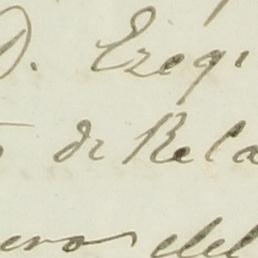 D. Ezeqi
de Rela
eros del